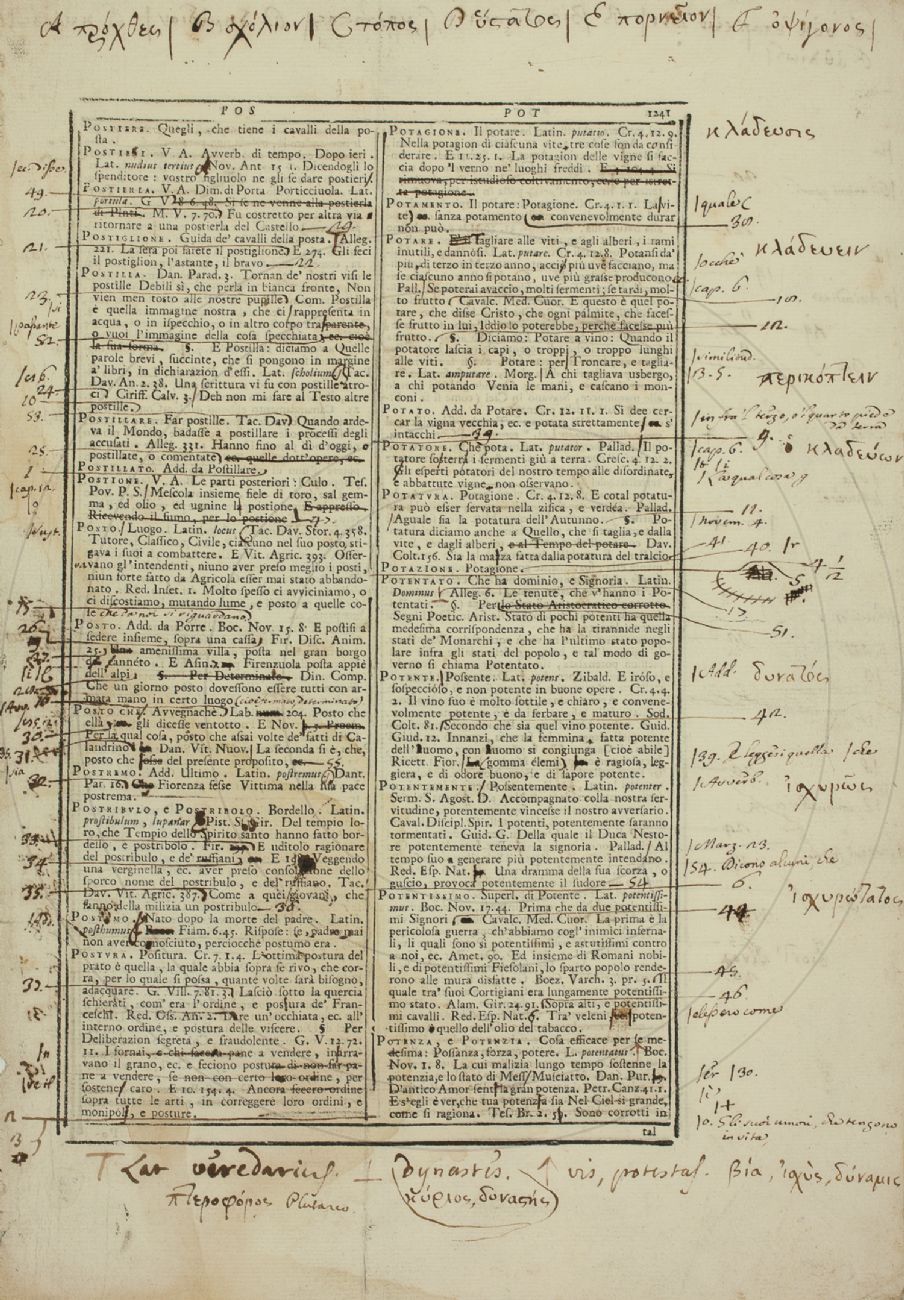 A πρόχθες | B σχόλιον | C τόπος | D ὕστατος | E πορνεῖον | F ὀψίγονος |
POS
POSTIERE. Quegli, che tiene i cavalli della po-
sta.
POSTIERI. V. A. Avverb. di tempo. Dopo ieri.
Lat. nudius tertius. Nov. Ant. 15 1. Dicendogli lo
spenditore: vostro figliuolo ne gli fe dare postieri.
POSTIERLA. V. A. Dim. di Porta Porticciuola. Lat.
portula. G V. 8 6. 98. Si se ne venne alla postierla
di Pinti. M. V. 7. 70. Fu costretto per altra via
ritornare a una postierla del Castello. 29.
POSTIGLIONE. Guida de' cavalli della posta. Alleg.
221. La sera poi farete il postiglione. E 274. Gli feci
il postiglion, l'astante, il bravo. 22.
POSTILLA. Dan. Parad. 3. Tornan de' nostri visi le
postille Debili sì, che perla in bianca fronte, Non
vien men tosto alle nostre pupille. Com. Postilla
è quella immagine nostra, che ci rappresenta in
acqua, o in ispecchio, o in altro corpo trasparente,
o vuoi l'immagine della cosa specchiata, ec. cioè
la sua forma. §. E Postilla: diciamo a Quelle
parole brevi, succinte, che si pongono in margine
a' libri, in dichiarazion d'essi. Lat. scholium. Tac.
Dav. An. 2. 38. Una scrittura vi fu con postille atro-
ci. Ciriff. Calv. 3. Deh non mi fare al Testo altre
postille.
POSTILLARE. Far postille. Tac. Dav. Quando arde-
va il Mondo, badasse a postillare i processi degli
accusati. Alleg. 331. Hanno fino al dì d'oggi, o
postillate, o comentate ec. quelle dott'opere, ec.
POSTILLATO. Add. da Postillare.
POSTIONE. V. A. Le parti posteriori: Culo. Tes.
Pov. P. S. Mescola insieme fiele di toro, sal gem-
ma, ed olio, ed ugnine la postione. E appresso.
Ricevendo il fumo, per lo postione
POSTO. Luogo. Latin. locus. Tac. Dav. Stor. 4. 358.
Tutore, Classico, Civile, ciascuno nel suo posto, sti-
gava i suoi a combattere. E Vit. Agric. 393. Osser-
vavano gl'intendenti, niuno aver preso meglio i posti,
niun forte fatto da Agricola esser mai stato abbando-
nato. Red. Inset. 1. Molto spesso ci avviciniamo, o
ci discostiamo, mutando lume, e posto a quelle co-
se che da noi si riguardano.
POSTO. Add. da Porre. Boc. Nov. 15. 8. E postisi a
sedere insieme, sopra una cassa. Fir. Disc. Anim.
25. Una amenissima villa, posta nel gran borgo
di Canneto. E Asin. Firenzuola posta appiè
dell'alpi. §. Per Determinato. Din. Comp.
Che un giorno posto dovessono essere tutti con ar-
mata mano in certo luogo (cioè fermato, determinato)
POSTO CHE. Avvegnachè. Lab. num. 204. Posto che
ella gli dicesse ventotto. E Nov.
Per la qual cosa, posto che assai volte de' fatti di Ca-
landrino. Dan. Vit. Nuov. La seconda si è, che,
posto che fosse del presente proposito, ec. 55.
POSTREMO. Add. Ultimo. Latin. postremus. Dant.
Par. 16. Che Fiorenza fesse Vittima nella sua pace
postrema.
POSTRIBULO, e POSTRIBOLO. Bordello. Latin.
prostibulum, lupanar. Pist. S. Gir. Del tempio lo-
ro, che Tempio dello Spirito santo hanno fatto bor-
dello, e postribolo. Fir. E uditolo ragionare
del postribulo, e de' ruffiani, E Veggendo
una verginella, ec. aver preso consolazione dello
sporco nome del postribulo, e del ruffiano. Tac.
Dav. Vit. Agric. 387. Come a quei giovani, che
fanno della milizia un postribulo. 38.
POSTUMO. Nato dopo la morte del padre. Latin.
posthumus. Fiam. 6. 45. Rispose: se, padre mai
non aver conosciuto, perciocchè postumo era.
POSTURA. Positura. Cr. 7. 1. 4. L'ottima postura del
prato è quella, la quale abbia sopra se rivo, che cor-
ra, per lo quale si possa, quante volte sarà bisogno,
adacquare. G. Vill. 7. 81. 3. Lasciò sotto la quercia
schierati, com' era l'ordine, e postura de' Fran-
ceschi. Red. Oss. An. 2. Dare un'occhiata, ec. all'
interno ordine, e postura delle viscere. § Per
Deliberazion segreta, e fraudolente. G. V. 12. 72.
11. I fornai, e chi facea pane a vendere, incarra-
vano il grano, ec. e feciono postura di non far pa-
ne a vendere, se non con certo loro ordine, per
sostener caro. E 10. 154. 4. Ancora fecero ordine
sopra tutte le arti, in correggere loro ordini, e
monipoli, e posture.
POT
1241
POTAGIONE. Il potare. Latin. putatio. Cr. 4. 12. 9.
Nella potagion di ciascuna vite, tre cose son da consi-
derare. E 11. 25. 1. La potagion delle viti si fac-
cia dopo 'l verno ne' luoghi freddi. E 4. 104. 1. Si
rinnuova, per istudioso coltivamento, e sì per istret-
ta potagione.
POTAMENTO. Il potare: Potagione. Cr. 4. 1. 1. La vi-
te sanza potamento convenevolmente durar
non può.
POTARE. Tagliare alle viti, e agli alberi, i rami
inutili, e dannosi. Lat. putare. Cr. 4. 12. 8. Potansi da'
più, di terzo in terzo anno, acciò più uve facciano, ma
se ciascuno anno si potano, uve più grasse producono.
Pall. Se poterai avaccio, molti sermenti; se tardi, mol-
to frutto. Cavalc. Med. Cuor. E questo è quel po-
tare, che disse Cristo, che ogni palmite, che faces-
se frutto in lui, Iddio lo poterebbe, perchè facesse più
frutto. §. Diciamo: Potare a vino: Quando il
potatore lascia i capi, o troppi, o troppo lunghi
alle viti. §. Potare: per Troncare, e taglia-
re. Lat. amputare. Morg. A chi tagliava usbergo,
a chi potando Venia le mani, e cascano i mon-
coni.
POTATO. Add. da Potare. Cr. 12. 11. 1. Si dee cer-
car la vigna vecchia, ec. e potata strettamente s'
intacchi. 39.
POTATORE. Che pota. Lat. putator. Pallad. Il po-
tatore sosterrà i sermenti giù a terra. Cresc. 4. 12. 2.
Gli esperti potatori del nostro tempo alle disordinate,
e abbattute vigne non osservano.
POTATURA. Potagione. Cr. 4. 12. 8. E cotal potatu-
ra può esser servata nella zisica, e verdéa. Pallad.
Aguale sia la potatura dell'Autunno. §. Po-
tatura diciamo anche a Quello, che si taglia, e dalla
vite, e dagli alberi, e al Tempo del potare. Dav.
Colt. 156. Sia la mazza fatta dalla potatura del tralcio.
POTAZIONE. Potagione.
POTENTATO. Che ha dominio, e Signoria. Latin.
Dominus. Alleg. 6. Le tenute, che v'hanno i Po-
tentati. §. Per lo Stato Aristocratico corrotto.
Segni Poetic. Arist. Stato di pochi potenti ha quella
medesima corrispondenza, che ha la tirannide negli
stati de' Monarchi, e che ha l'ultimo stato popo-
lare infra gli stati del popolo, e tal modo di go-
verno si chiama Potentato.
POTENTE. Possente. Lat. potens. Zibald. E iroso, e
sospeccioso, e non potente in buone opere. Cr. 4. 4.
2. Il vino suo è molto sottile, e chiaro, e convene-
volmente potente, e da serbare, e maturo. Sod.
Colt. 81. Secondo che sia quel vino potente. Guid.
Giud. 12. Innanzi, che la femmina, fatta potente
dell'uomo, con uomo si congiunga [cioè abile]
Ricett. Fior. La gomma elemi è ragiosa, leg-
giera, e di odore buono, e di sapore potente.
POTENTEMENTE. Possentemente. Latin. potenter.
Serm. S. Agost. D. Accompagnato colla nostra ser-
vitudine, potentemente vincesse il nostro avversario.
Caval. Discipl. Spir. I potenti, potentemente saranno
tormentati. Guid. G. Della quale il Duca Nesto-
re potentemente teneva la signoria. Pallad. Al
tempo suo a generare più potentemente intendano.
Red. Esp. Nat. Una dramma della sua scorza, o
guscio, provoca potentemente il sudore. 54
POTENTISSIMO. Superl. di Potente. Lat. potentissi-
mus. Boc. Nov. 17. 44. Prima che da due potentissi-
mi Signori Cavalc. Med. Cuor. La prima è la
pericolosa guerra, ch'abbiamo cogl'inimici inferna-
li, li quali sono potentissimi, e astutissimi contro
a noi, ec. Amet. 90. Ed insieme di Romani nobi-
li, e di potentissimi Fiesolani, lo sparto popolo rende-
rono alle mura disfatte. Boez. Varch. 3. pr. 5. Il
quale tra' suoi Cortigiani era lungamente potentissi-
mo stato. Alam. Gir. 24. 91. Sopra alti, e potentissi-
mi cavalli. Red. Esp. Nat. 6. Tra' veleni poten-
tissimo è quello dell'olio del tabacco.
POTENZA, e POTENZIA. Cosa efficace per se me-
desima: Possanza, forza, potere. L. potentatus. Boc.
Nov. 1. 8. La cui malizia lungo tempo sostenne la
potenzia, e lo stato di Mess. Musciatto. Dan. Pur. 30.
D'antico Amor sentì la gran potenza. Petr. Canz. 41. 1.
E s'egli è ver, che tua potenza sia Nel Ciel sì grande,
come si ragiona. Tes. Br. 2. 50. Sono corrotti in
tal
κλάδευσις
quale
38.
κλαδεύειν
cap. 6.
περικόπτειν
infra 'l terzo, o 'l quarto piede
cap. 6.
κλαδεύων
La qual cosa
41.
40.
51.
Add.
δυνατός
42.
Avverb.
ἰσχυρῶς
Marz. 23.
54. Dicono alcuni che
6.
ἰσχυρότατος
45.
46
130.
49.
20.
21.
23.
52.
24
53.
25.
cap. 12.
26.
30.
31
32.
33.
34
35.
Lat veredarius. Dynastes. vis, potestas. βία, ἰσχύς, δύναμις
πτεροφόρος Plutarco. κύριος, δυνάστης